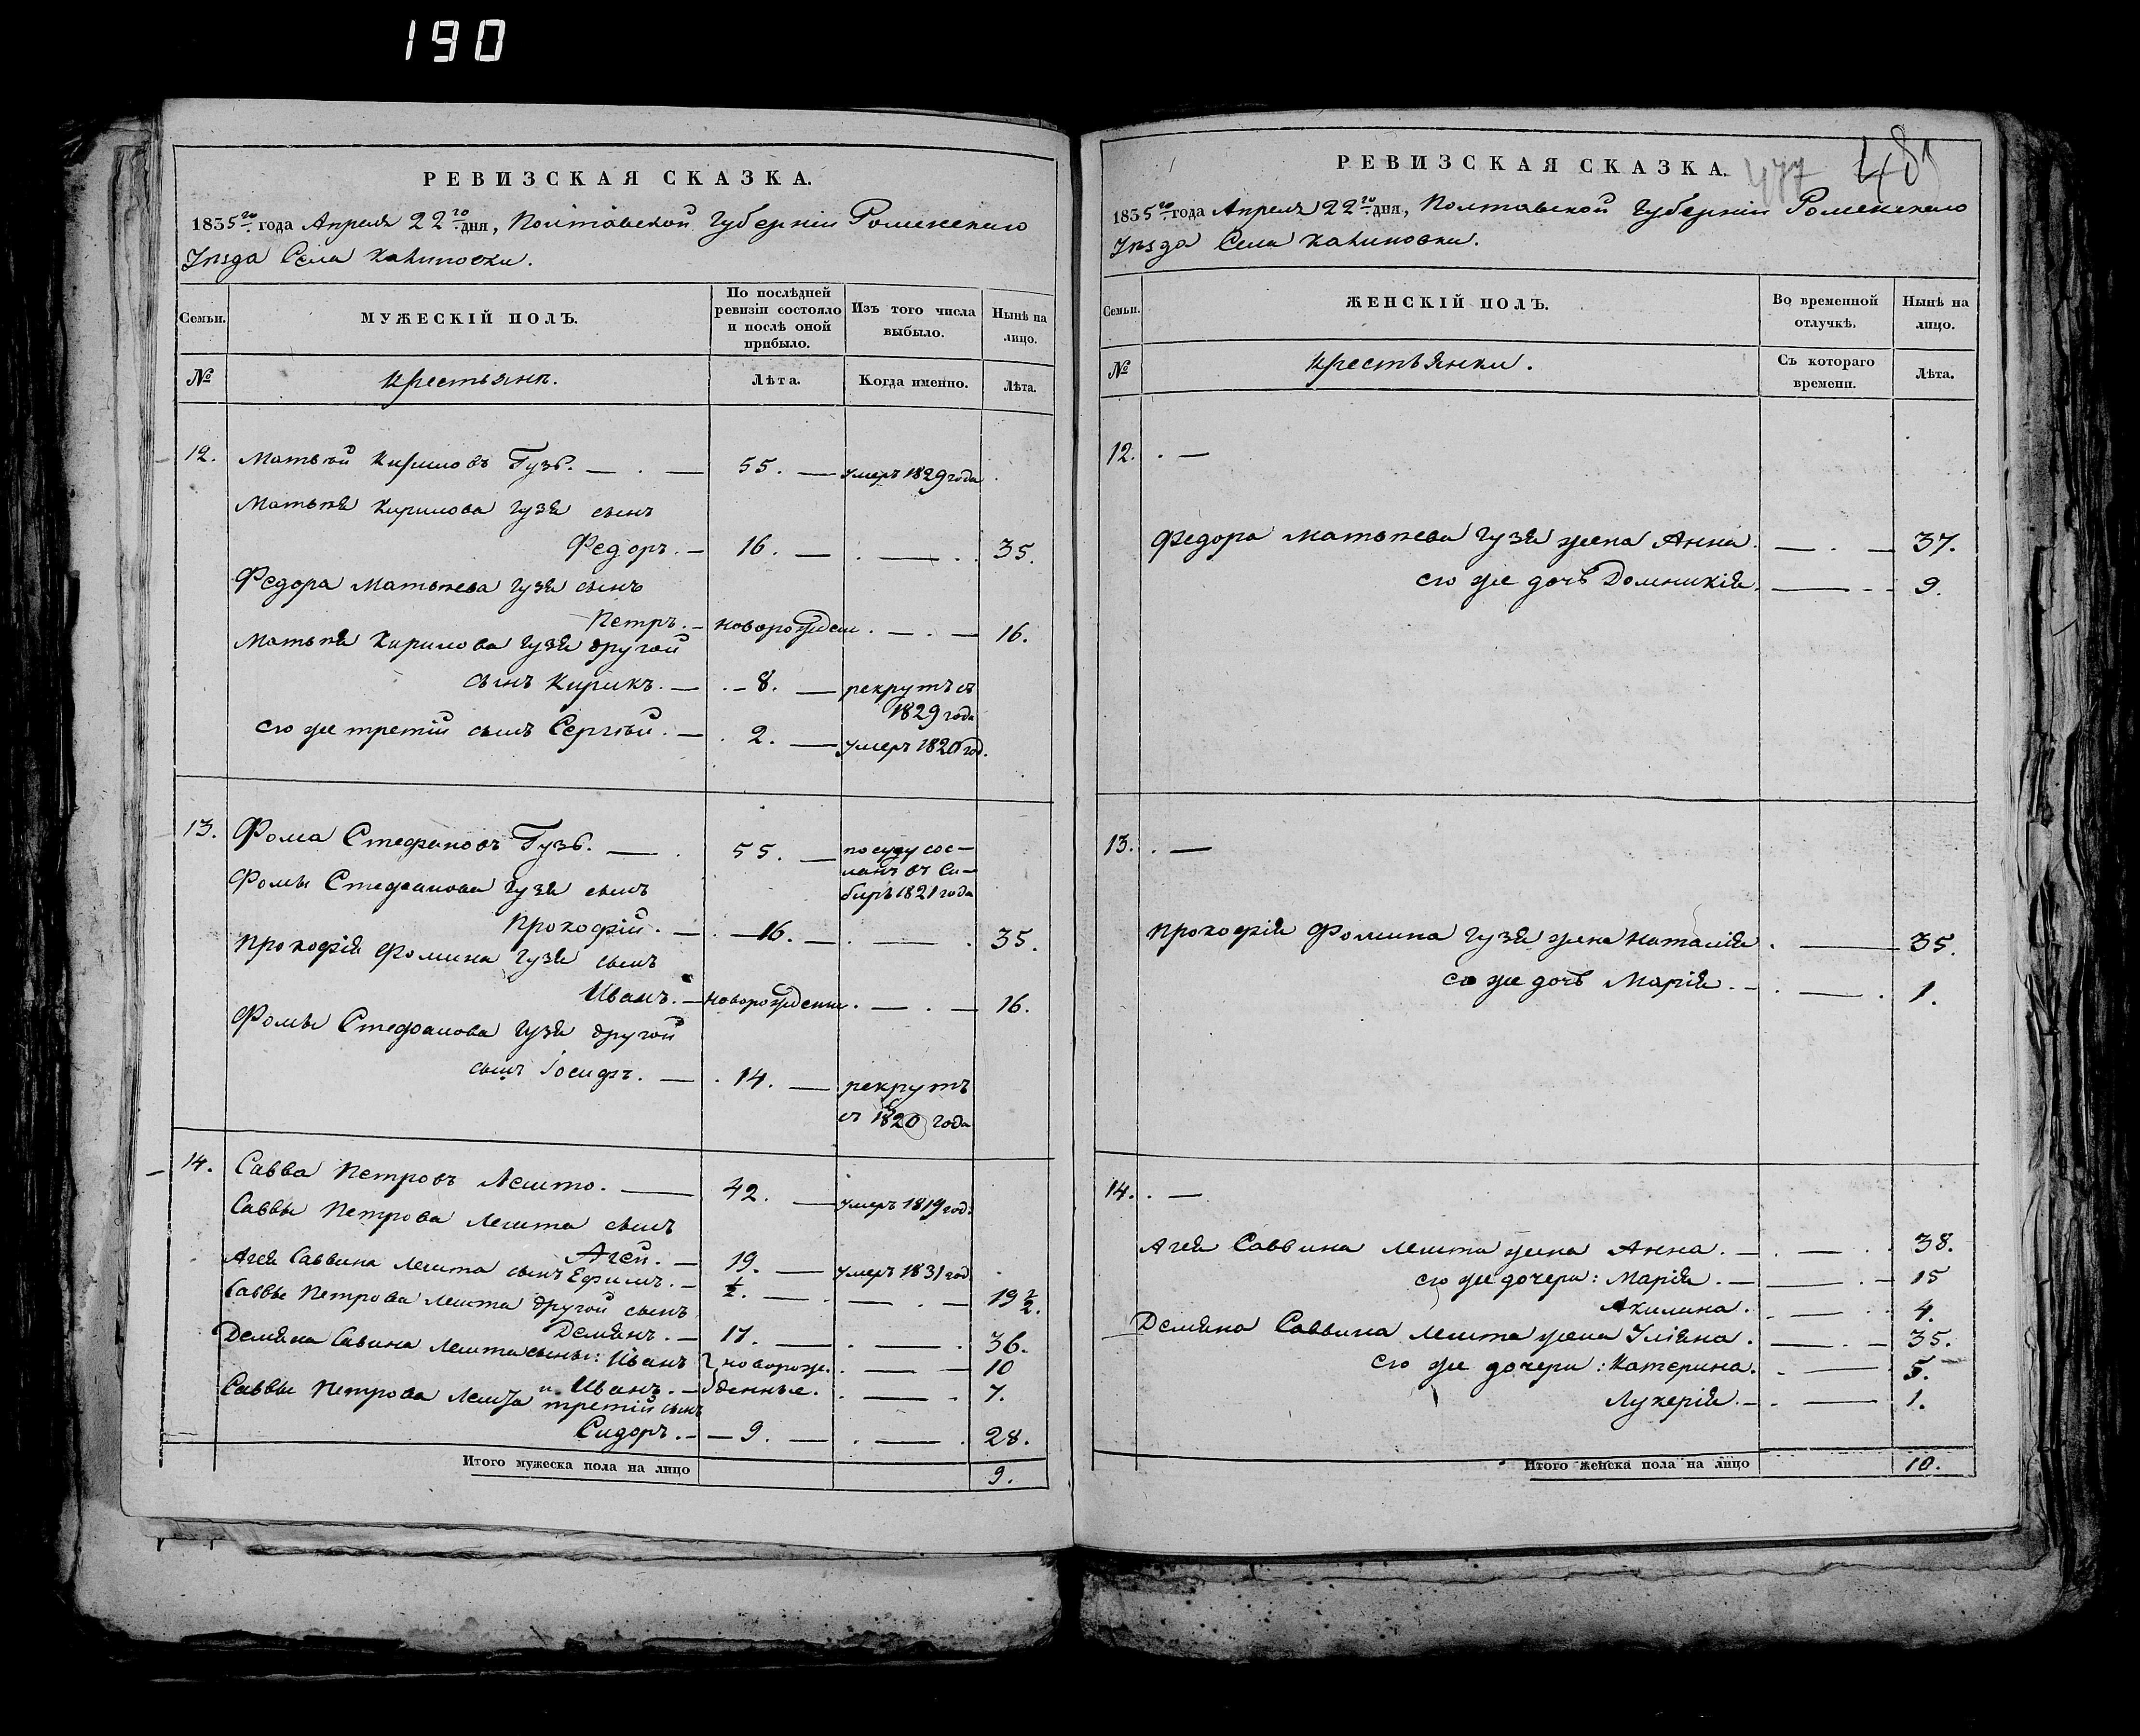 190
РЕВИЗСКАЯ СКАЗКА.
1835го года Апреля 22го дня, Полтавской Губерніи Роменскаго
Уѣзда Села Калиновки.
Семьи.
МУЖЕСКІЙ ПОЛЪ.
По послѣдней ревизіи состояло и послѣ оной прибыло.
Изъ того числа выбыло.
Нынѣ на лицо.
№
Крестьяне.
Лѣта.
Когда именно.
Лѣта.
12. Матвѣй Кириловъ Гузь. — 55. — умеръ 1829 года
Матвѣя Кирилова Гузя сынъ
Федоръ. — 16. — 35.
Федора Матвѣева Гузя сынъ
Петръ. — новорожден. — 16.
Матвѣя Кирилова Гузя другой
сынъ Кирикъ. — 8. — рекрутъ съ
1829 года
его же третій сынъ Сергѣй. — 2. — умеръ 1820 год.
13. Фома Стефановъ Гузь. — 55. — по суду сос-
ланъ въ Си-
бирь 1821 года
Фомы Стефанова Гузя сынъ
Прокофій. — 16. — 35.
Прокофія Фомина Гузя сынъ
Иванъ. — новорожденн. — 16.
Фомы Стефанова Гузя другой
сынъ Іосифъ. — 14. — рекрутъ
съ 1820 года
14. Савва Петровъ Лешто. — 42. — умеръ 1819 год.
Саввы Петрова Лешта сынъ
Агей. — 19. — умеръ 1831 год
Агея Саввина Лешта сынъ Ефимъ. — ½. — 19½.
Саввы Петрова Лешта другой сынъ
Демянъ. — 17. — 36.
Демяна Савина Лешта сыны: Иванъ новорож- 10
и Иванъ. — денные. — 7.
Саввы Петрова Лешта третій сынъ
Сидоръ. — 9. — 28.
Итого мужеска пола на лицо 9.
477 481
РЕВИЗСКАЯ СКАЗКА.
1835го года Апреля 22го дня, Полтавской Губерніи Роменскаго
Уѣзда Села Калиновки.
Семьи.
ЖЕНСКІЙ ПОЛЪ.
Во временной отлучкѣ.
Нынѣ на лицо.
№
Крестьянки.
Съ котораго времени.
Лѣта.
12. —
Федора Матвѣева Гузя жена Анна. — 37.
его же дочь Домникія. — 9.
13. —
Прокофія Фомина Гузя жена Наталія. — 35.
его же дочь Марія. — 1.
14. —
Агея Саввина Лешта жена Анна. — 38.
его же дочери: Марія. — 15
Акилина. — 4.
Демяна Саввина Лешта жена Уліяна. — 35.
его же дочери: Катерина. — 5.
Лукерія. — 1.
Итого женска пола на лицо 10.